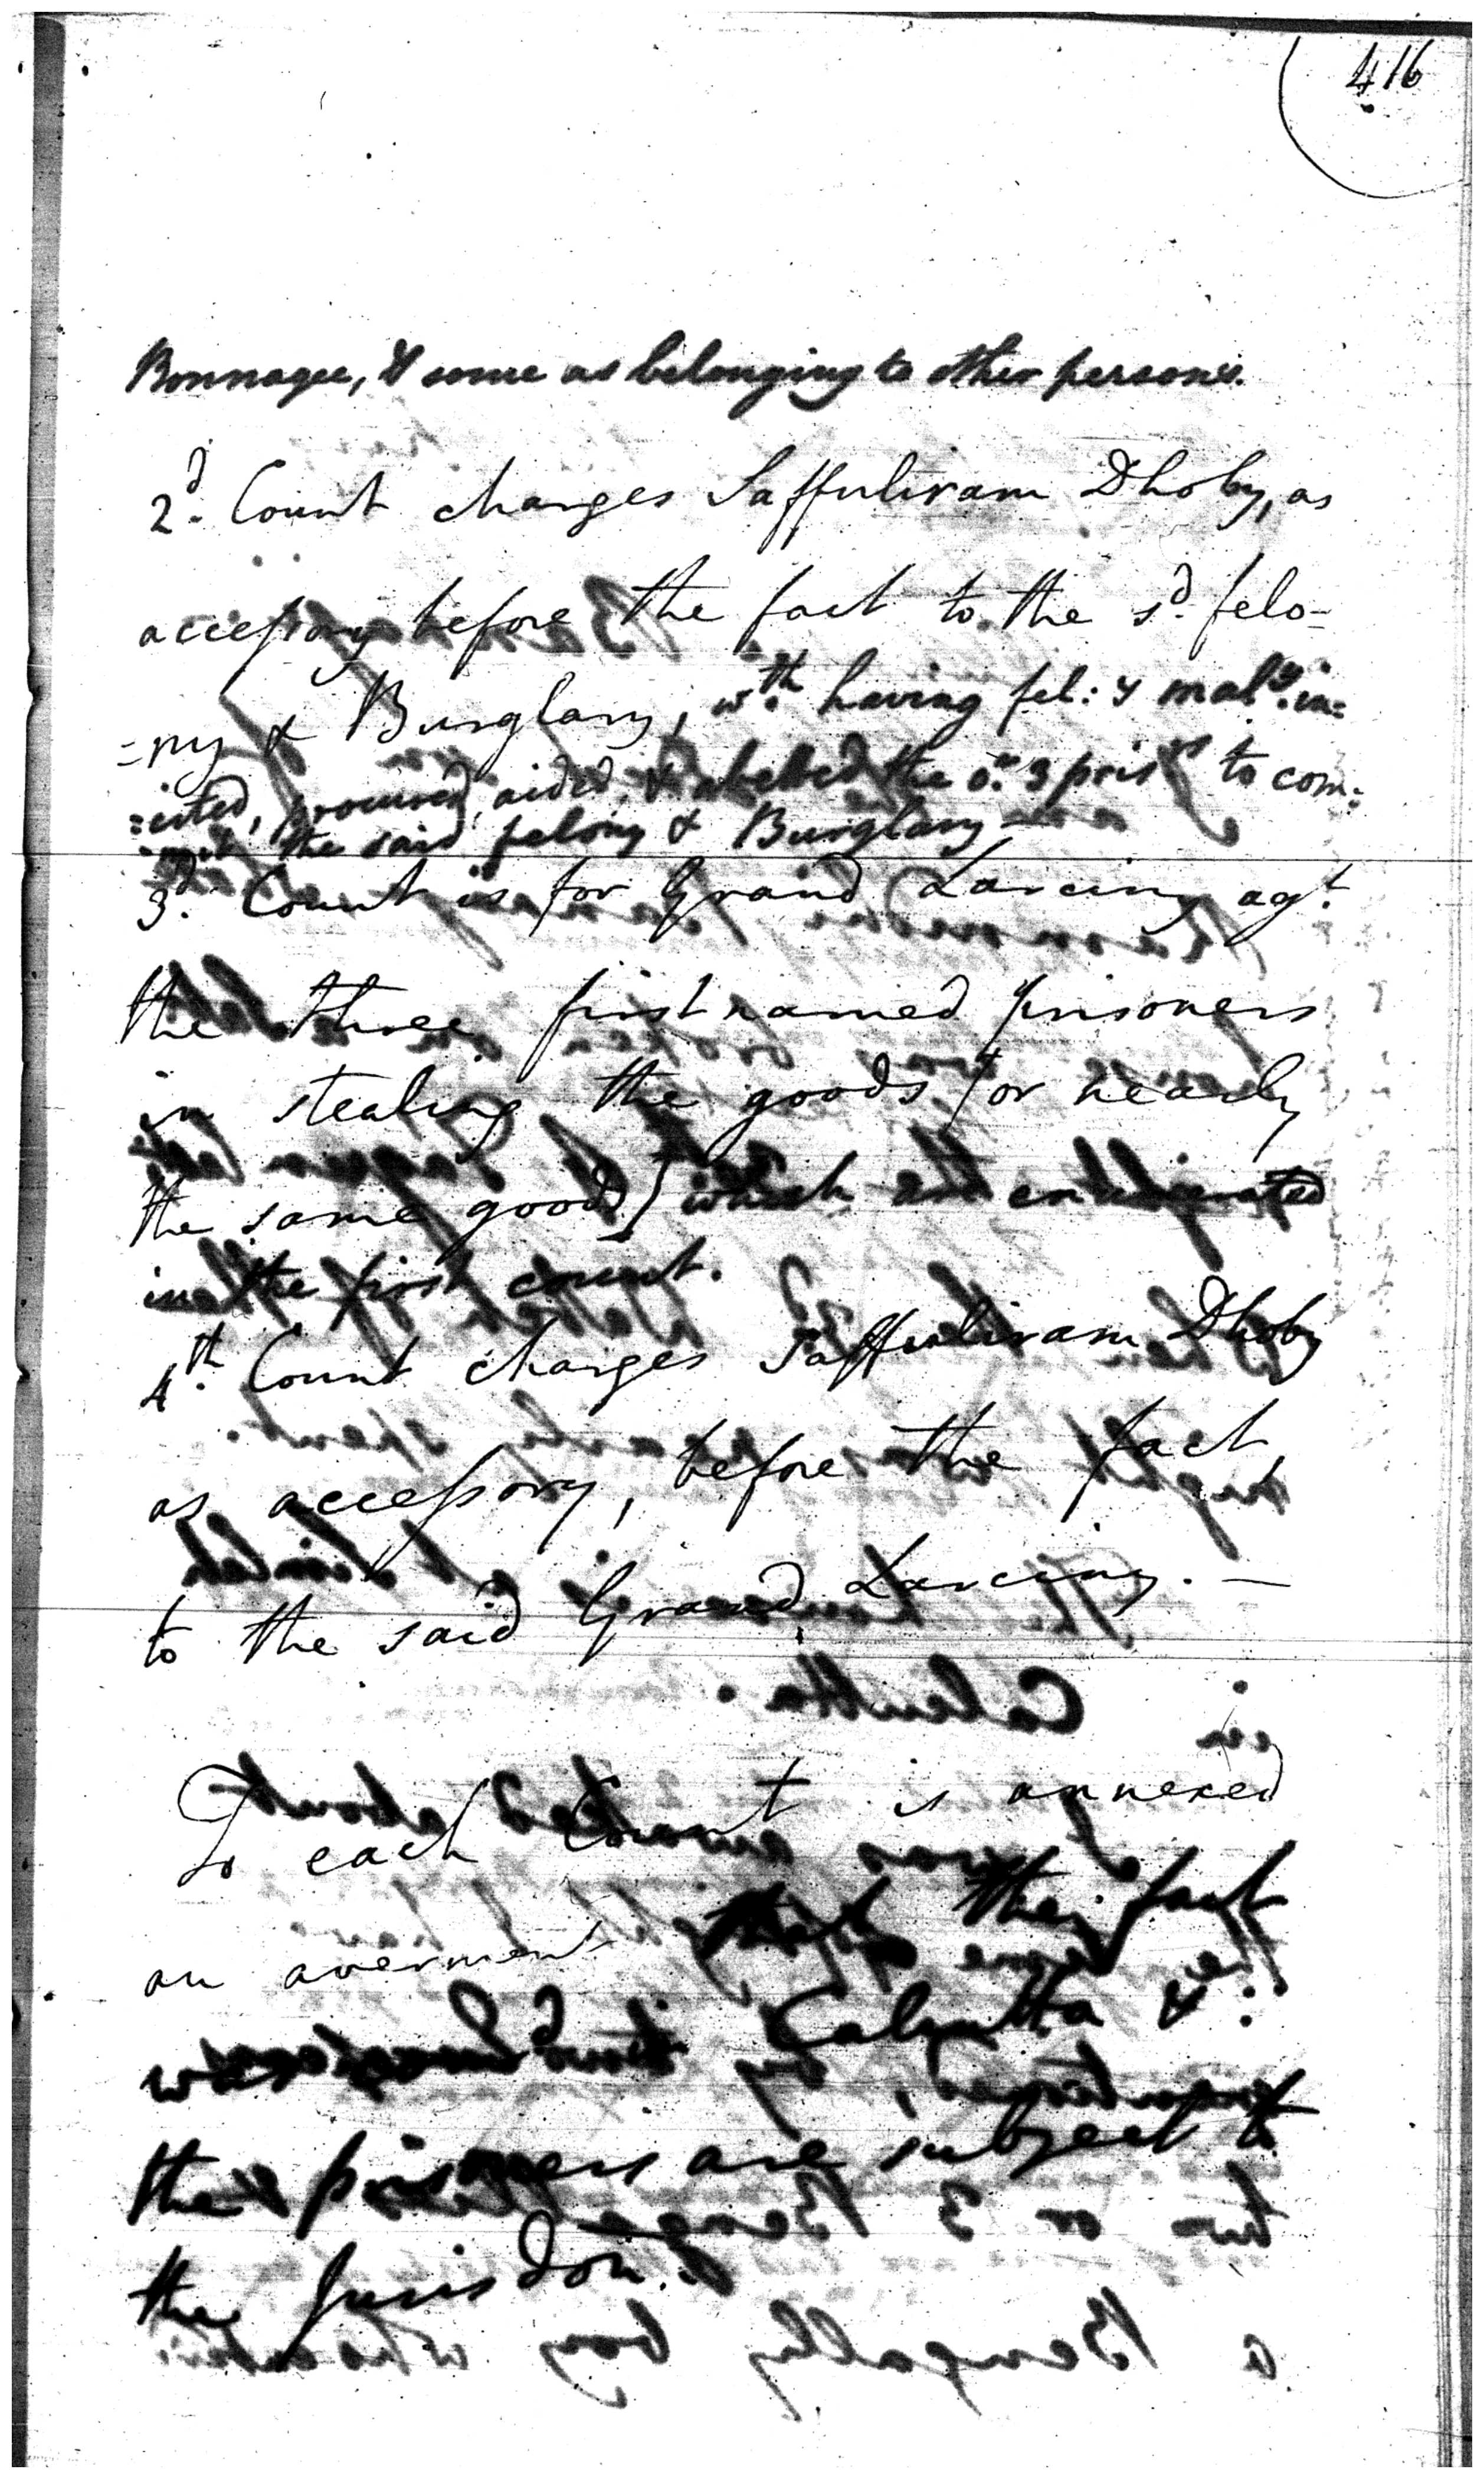 416
Bonnagee, & some as belonging to other persons.
2d. Count charges Saffuliram Dhoby, as
accessory before the fact to the sd. felo-
-ny & Burglary, wth. having fel: & maly. in=
=cited, procured, aided, & abetted the or. 3 prisrs to com:
:mit the said felony & Burglary —
3d. Count is for Grand Larceny agt.
the three first named prisoners
in stealing the goods (or nearly
the same goods) which are
in the first count.
4th. Count charges Saffuliram Dhoby
as accessory, before the fact,
to the said Grand Larceny. —
To each Count is annexed
an averment that the fact
was in Calcutta &c:
the prisoners are subject to
the Jurisdon.